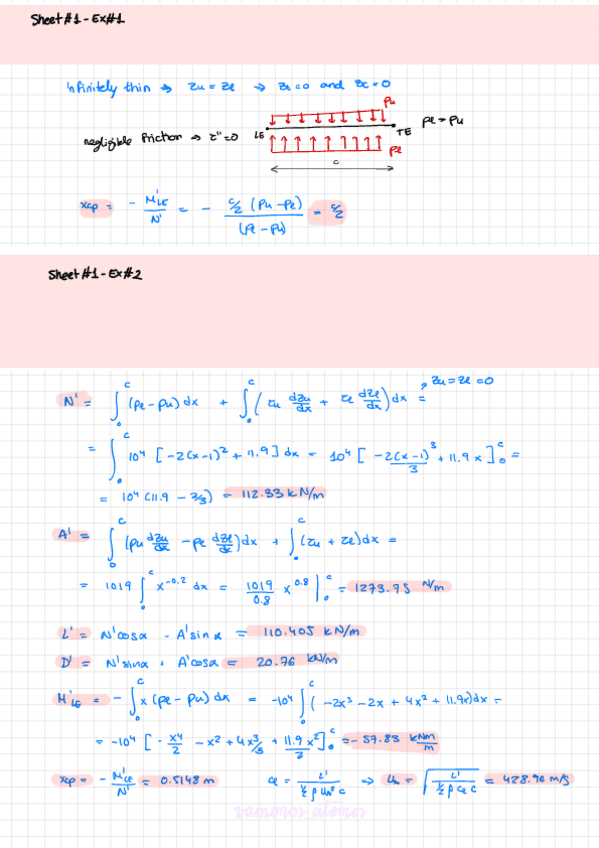 Sheet #1 - Ex#1
Infinitely thin → zu = ze → zt = 0 and zc = 0
Pu
LE TE pe > pu
negligible friction → τ" = 0
pe
c
xcp = - M'LE / N' = - c/2 (pu - pe) / (pe - pu) = c/2
Sheet #1 - Ex#2
zu = ze = 0
N' = ∫₀ᶜ (pe - pu) dx + ∫₀ᶜ (τu dzu/dx + τe dze/dx) dx =
= ∫₀ᶜ 10⁴ [-2(x-1)² + 11.9] dx = 10⁴ [ -2(x-1)³/3 + 11.9 x ]₀ᶜ =
= 10⁴ (11.9 - 2/3) = 112.33 kN/m
A' = ∫₀ᶜ (pu dzu/dx - pe dze/dx) dx + ∫₀ᶜ (τu + τe) dx =
= 1019 ∫₀ᶜ x^-0.2 dx = 1019/0.8 x^0.8 |₀ᶜ = 1273.75 N/m
L' = N'cosα - A'sinα = 110.405 kN/m
D' = N'sinα + A'cosα = 20.76 kN/m
M'LE = - ∫₀ᶜ x (pe - pu) dx = -10⁴ ∫₀ᶜ (-2x³ - 2x + 4x² + 11.9x) dx =
= -10⁴ [ - x⁴/2 - x² + 4x³/3 + 11.9 x²/2 ]₀ᶜ = -57.83 kNm/m
xcp = - M'LE / N' = 0.5148 m ce = L' / ½ ρ U∞² c → U∞ = √( L' / ½ ρ ce c ) = 428.96 m/s
vamonos_atomos